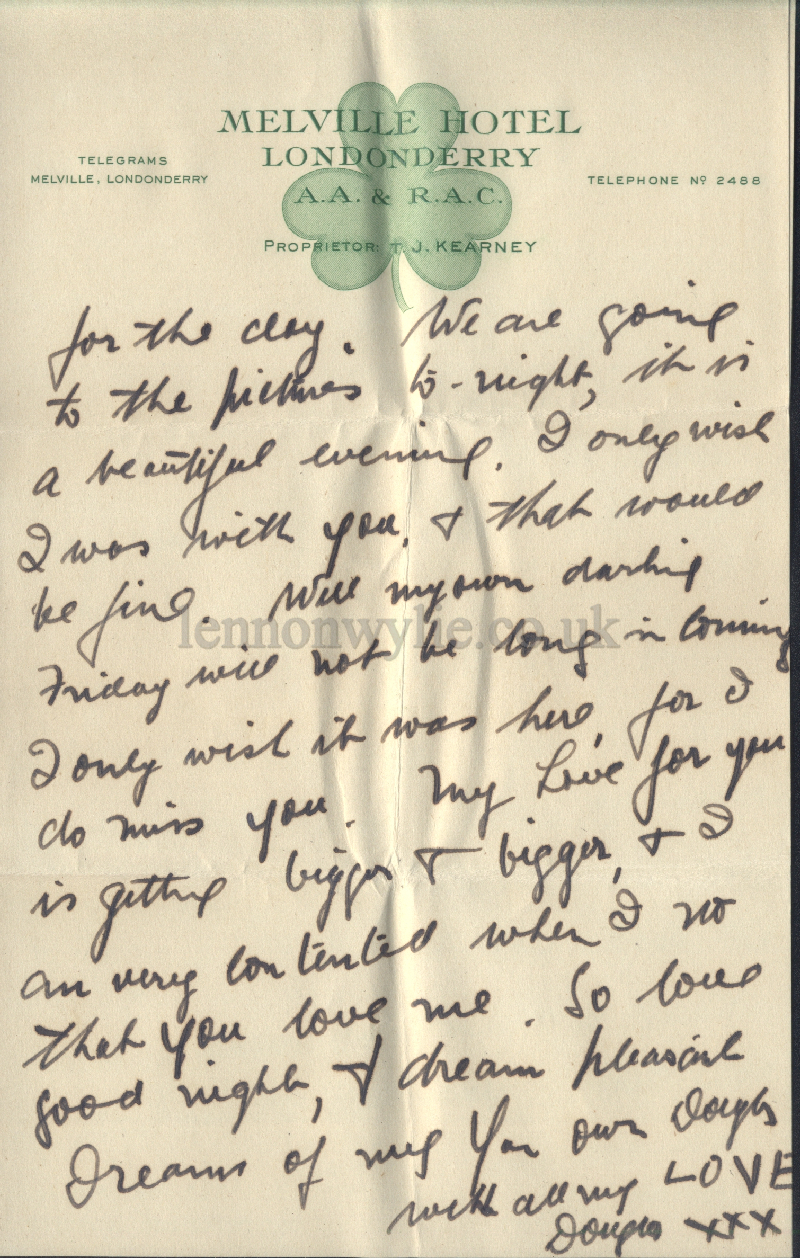 MELVILLE HOTEL
LONDONDERRY
A.A. & R.A.C.
PROPRIETOR: T. J. KEARNEY
TELEGRAMS
MELVILLE, LONDONDERRY
TELEPHONE Nº 2488
for the day. We are going
to the pictures to-night, it is
a beautiful evening. I only wish
I was with you, & that would
be fine. Well my own darling
Friday will not be long in coming
I only wish it was here, for I
do miss you. My Love for you
is getting bigger & bigger, & I
am very contented when I no
that you love me. So love
good night, & dream pleasant
Dreams of me your own Douglas
with all my LOVE
Douglas xxx
lennonwylie.co.uk